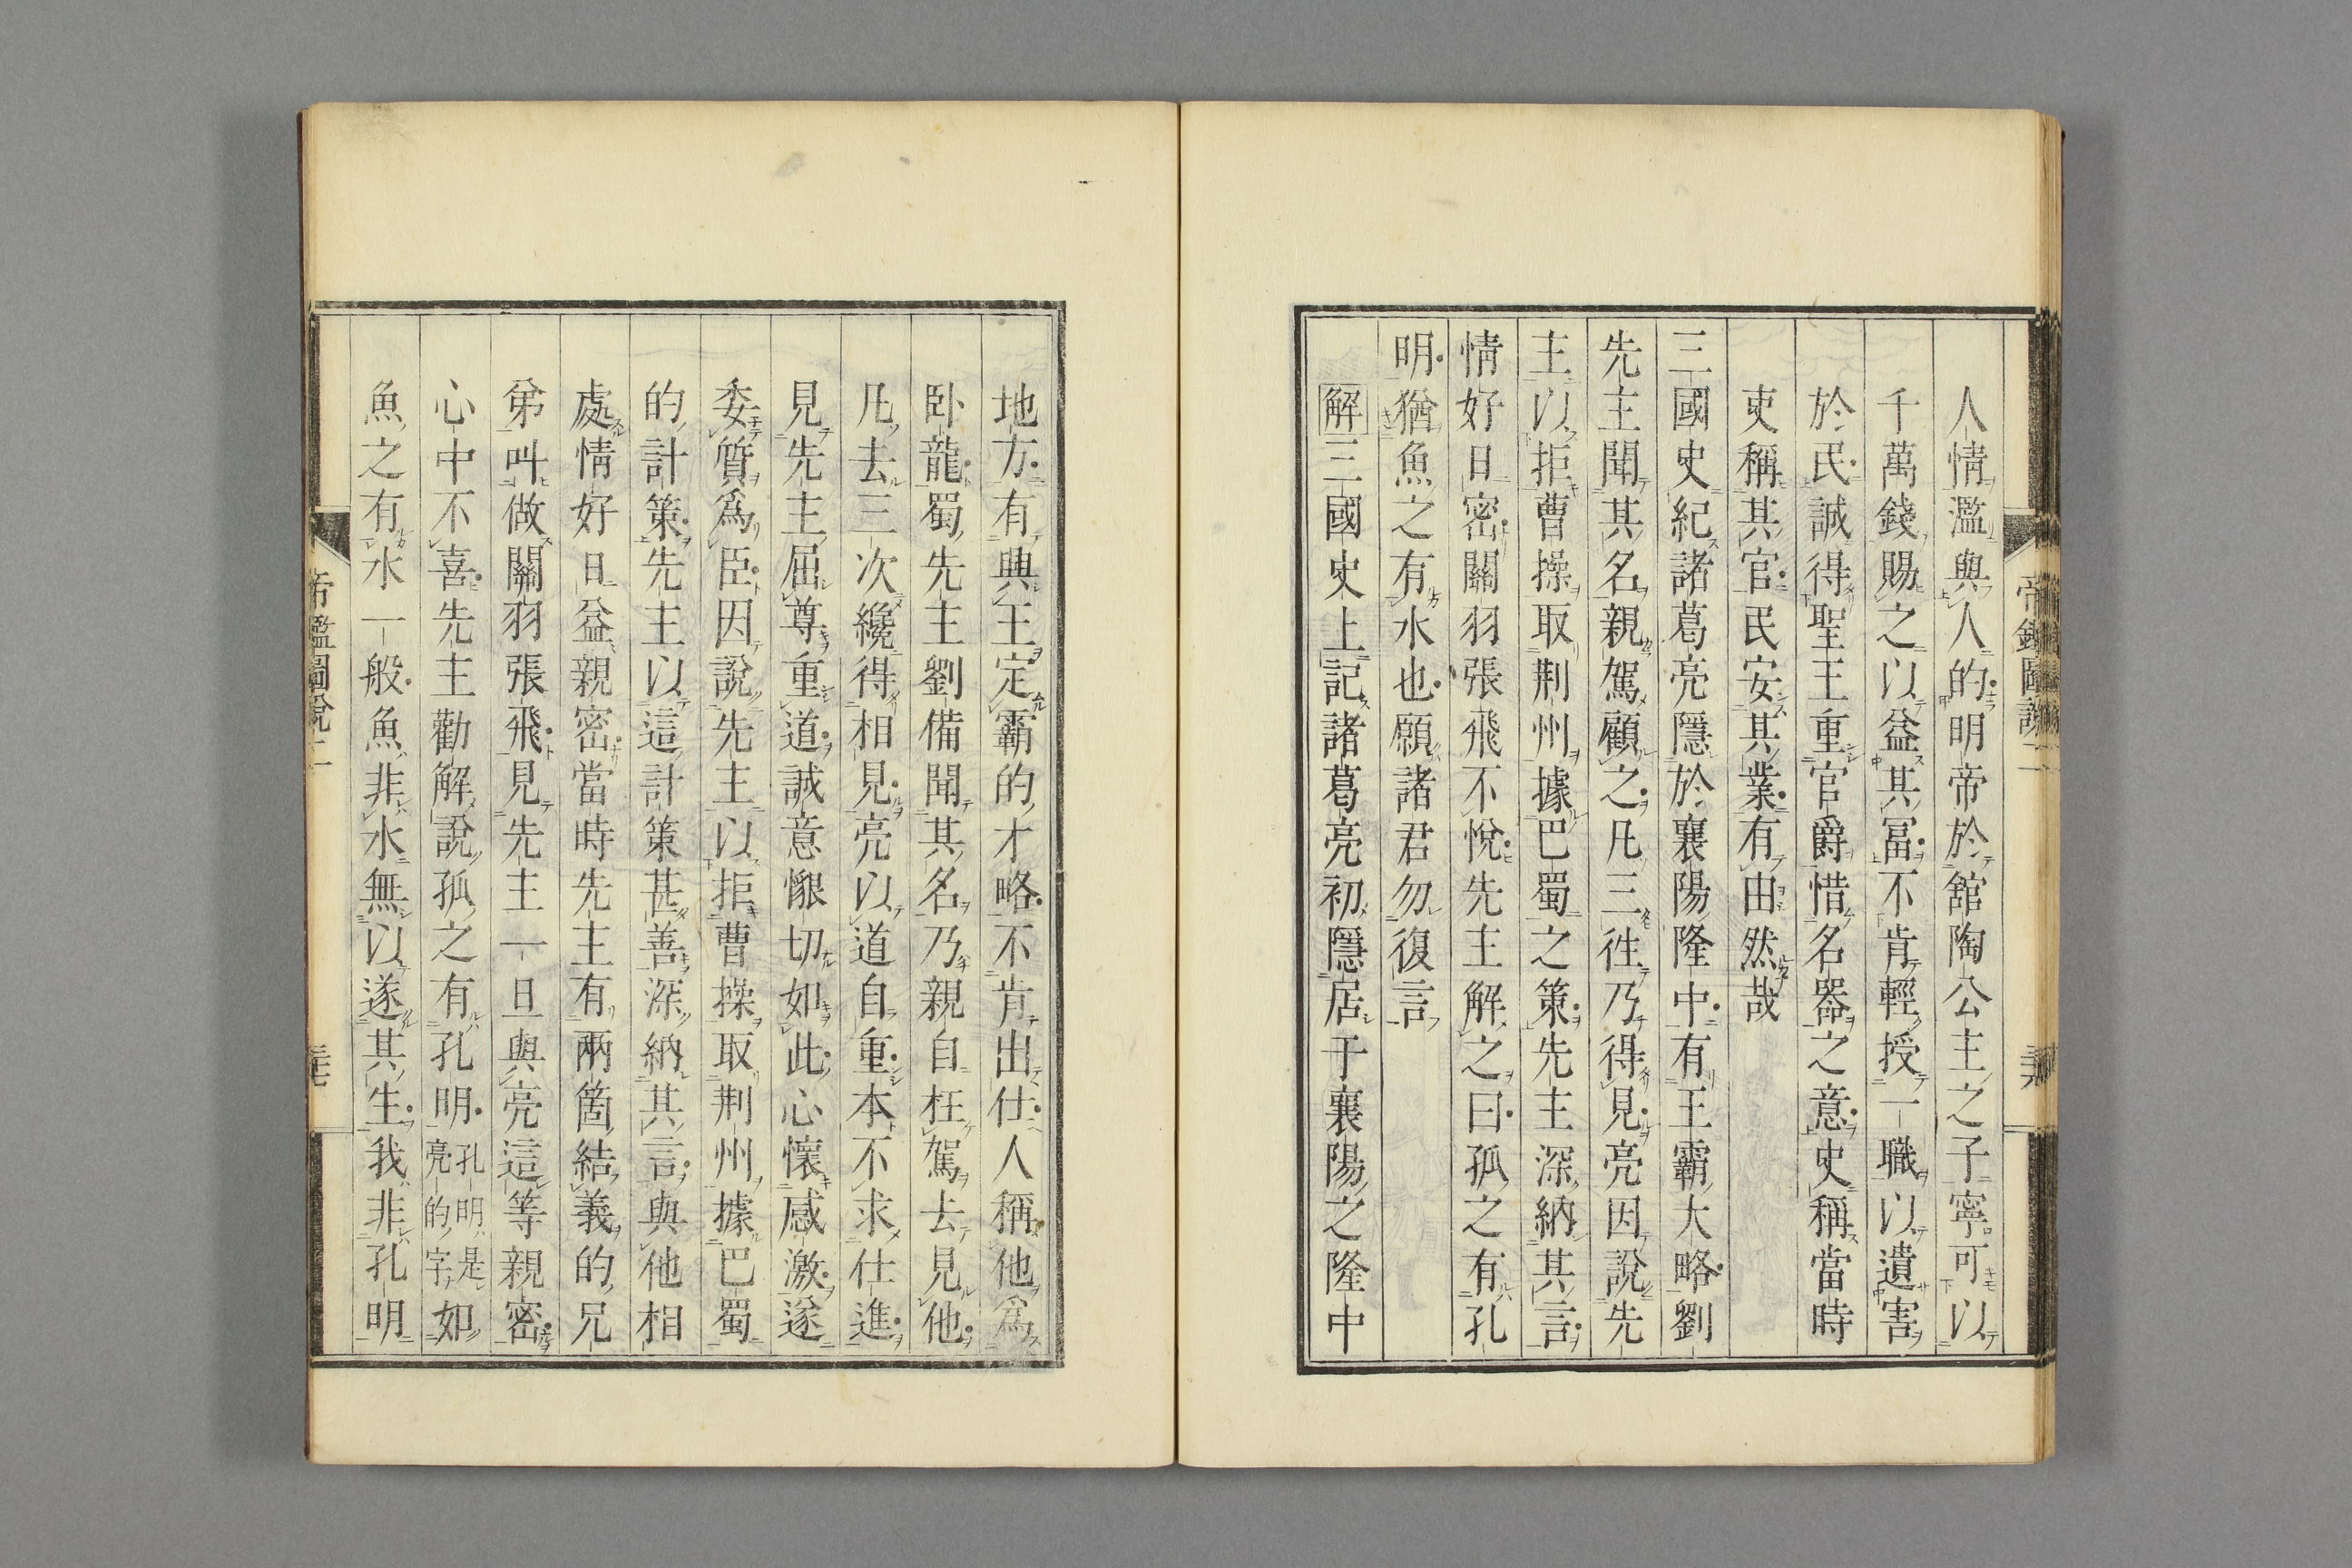 人情濫與人的明帝於舘陶公主之子寧可以
千萬錢賜之以益其冨不肯輕授一職以遺害
於民誠得聖王重官爵惜名器之意史稱當時
吏稱其官民安其業有由然哉
三國史紀諸葛亮隱於襄陽隆中有王霸大略劉
先主聞其名親駕顧之凡三徃乃得見亮因說先
主以拒曹操取荆州據巴蜀之策先主深納其言
情好日密關羽張飛不悅先主解之曰孤之有孔
明猶魚之有水也願諸君勿復言
解三國史上記諸葛亮初隱居于襄陽之隆中
地方有興王定霸的才略不肯出仕人稱他爲
卧龍蜀先主劉備聞其名乃親自枉駕去見他
凡去三次纔得相見亮以道自重本不求仕進
見先主屈尊重道誠意懇切如此心懷感激遂
委質爲臣因說先主以拒曹操取荆州據巴蜀
的計策先主以這計策甚善深納其言與他相
處情好日益親密當時先主有兩箇結義的兄
弟叫做關羽張飛見先主一旦與亮這等親密
心中不喜先主勸解說孤之有孔明孔明是亮的字如
魚之有水一般魚非水無以遂其生我非孔明
帝鑑圖說二